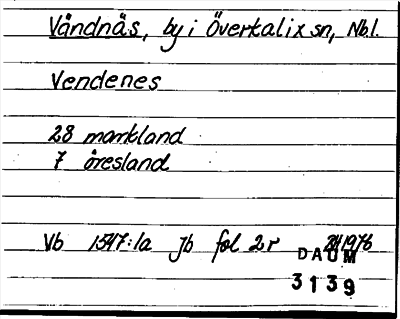 Våndnäs, by i Övertalix sn, Nb.l.
Vendenes
28 markland
7 öresland
Vb 1547:1a Jb fol 2r
DAUM
3139